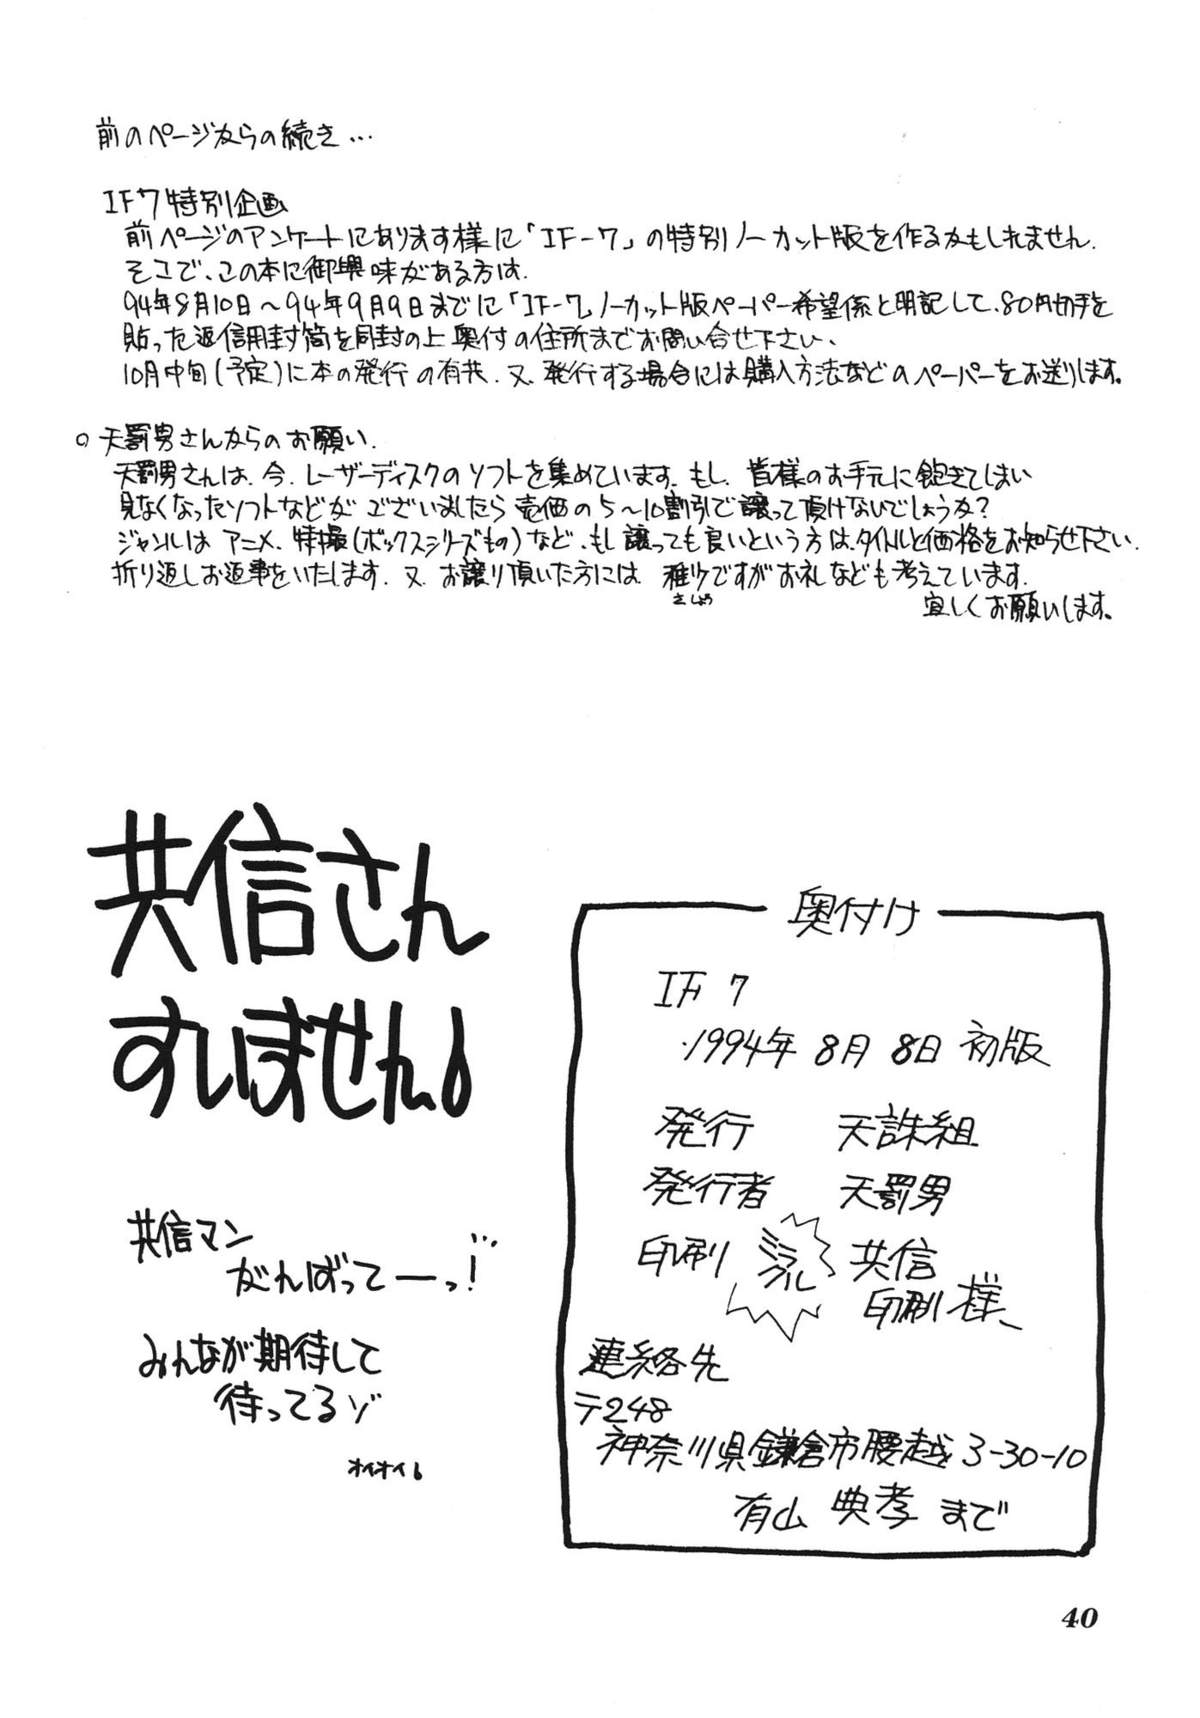 前のページからの続き…
IF7特別企画
前ページのアンケートにあります様に「IF-7」の特別ノーカット版を作るかもしれません.
そこで、この本に御興味がある方は.
94年8月10日～94年9月9日までに「IF-7」ノーカット版ペーパー希望係と明記して、80円切手を
貼った返信用封筒を同封の上奥付の住所までお問い合せ下さい.
10月中旬(予定)に本の発行の有無.又.発行する場合には購入方法などのペーパーをお送りします。
○天罰男さんからのお願い.
天罰男さんは、今、レーザーディスクのソフトを集めています.もし、皆様のお手元に飽きてしまい
見なくなったソフトなどがございましたら売価の5～10割引で譲って頂けないでしょうか?
ジャンルはアニメ、特撮(ボックスシリーズもの)など、もし譲っても良いという方は、タイトルと価格をお知らせ下さい.
折り返しお返事をいたします.又.お譲り頂いた方には、些少ですがお礼なども考えています.
さしょう
宜しくお願いします。
共信さん
すいません
共信マン
がんばってーっ!
みんなが期待して
待ってるゾ
オイオイ
奥付け
IF 7
・1994年 8月 8日 初版
発行 天誅組
発行者 天罰男
印刷 ミラクル 共信
印刷 様、
連絡先
〒248
神奈川県鎌倉市腰越3-30-10
有山 典孝 まで
40